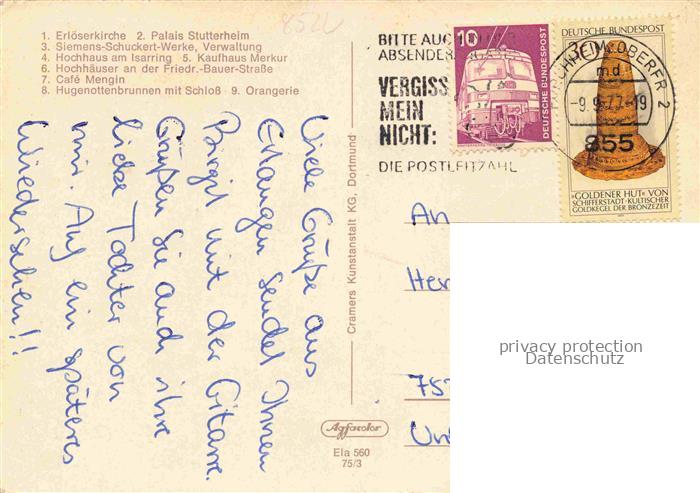 8520
1. Erlöserkirche 2. Palais Stutterheim
3. Siemens-Schuckert-Werke, Verwaltung
4. Hochhaus am Isarring 5. Kaufhaus Merkur
6. Hochhäuser an der Friedr.-Bauer-Straße
7. Café Mengin
8. Hugenottenbrunnen mit Schloß 9. Orangerie
Viele Grüße aus
Erlangen sendet Ihnen
Birgit mit der Gitarre.
Grüßen Sie auch ihre
liebe Tochter von
mir. Auf ein späteres
Wiedersehen!!
Cramers Kunstanstalt KG, Dortmund
Agfacolor
Ela 560
75/3
BITTE AUCH
ABSENDER
VERGISS
MEIN
NICHT:
DIE POSTLEITZAHL
10
DEUTSCHE BUNDESPOST
DEUTSCHE BUNDESPOST
30
FORCHHEIM, OBERFR 2
md
-9.9.77-19
855
»GOLDENER HUT« VON
SCHIFFERSTADT·KULTISCHER
GOLDKEGEL DER BRONZEZEIT
An
Her
75
Un
privacy protection
Datenschutz